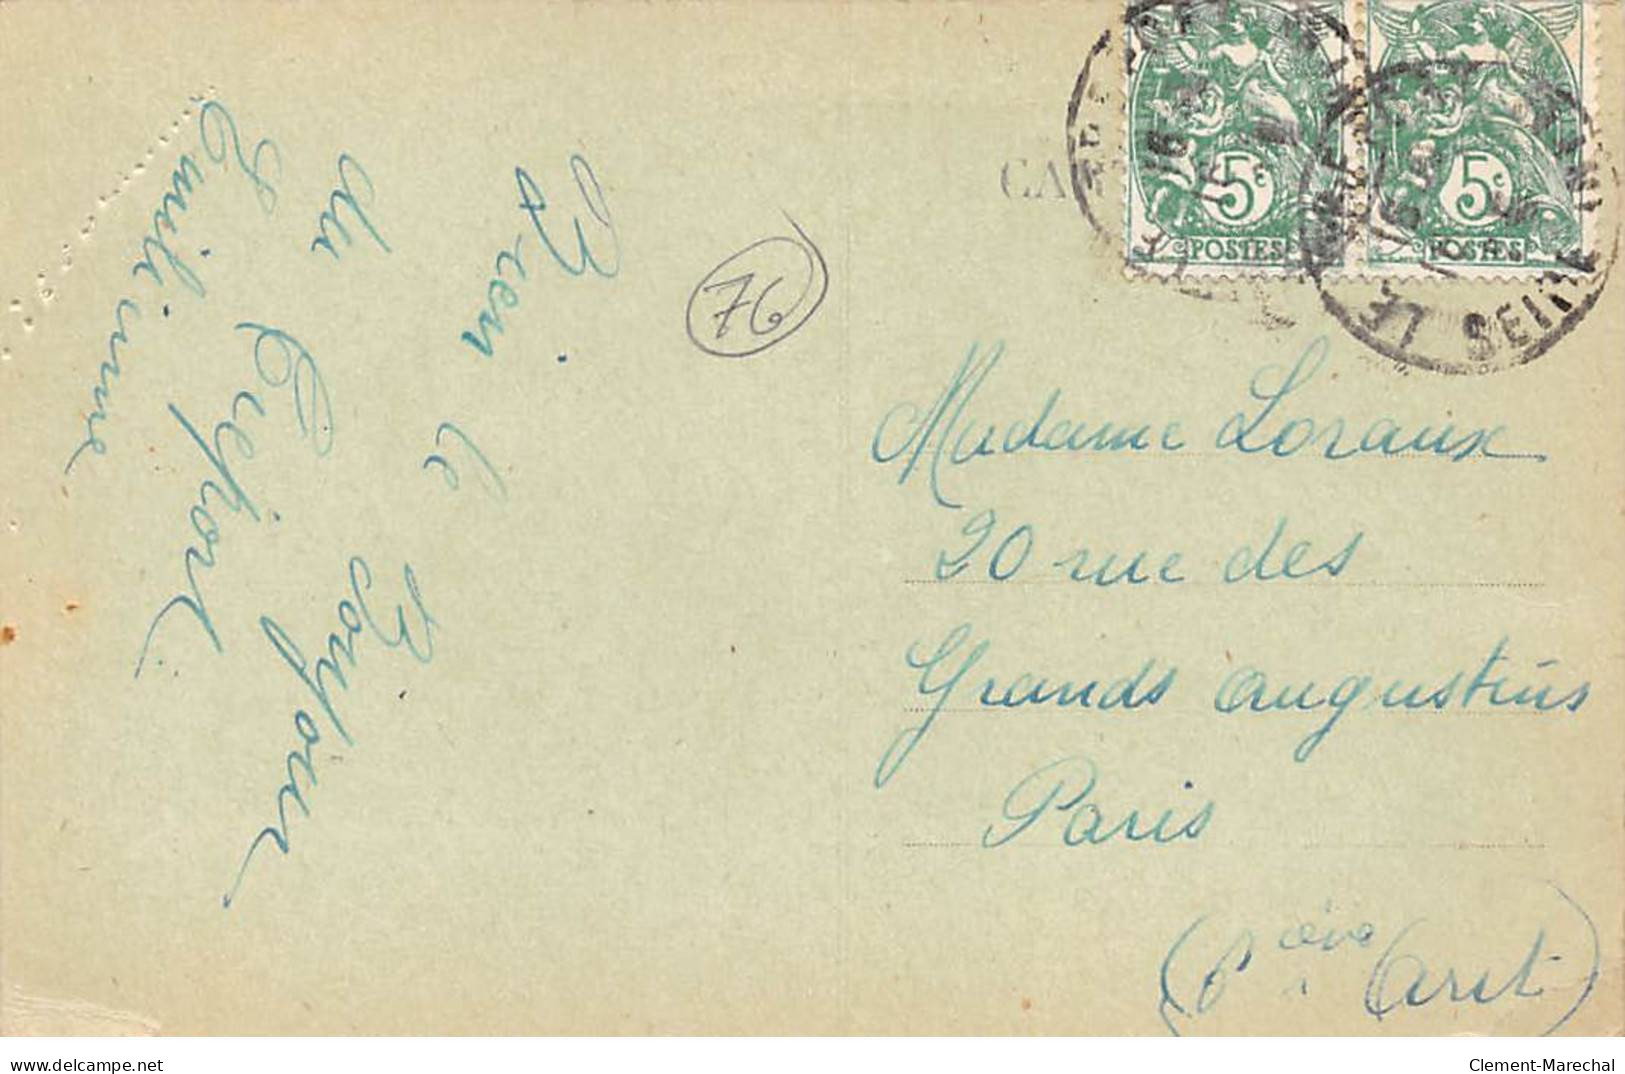 Bien le Bonjour
du Tréport
Emilienne
76
CA
5c
POSTES
5c
POSTES
LE TRÉPORT
SEINE INF
Madame Loraux
20 rue des
Grands augustins
Paris
(6 ième Arrt)
delcampe.net
Clement-Marechal